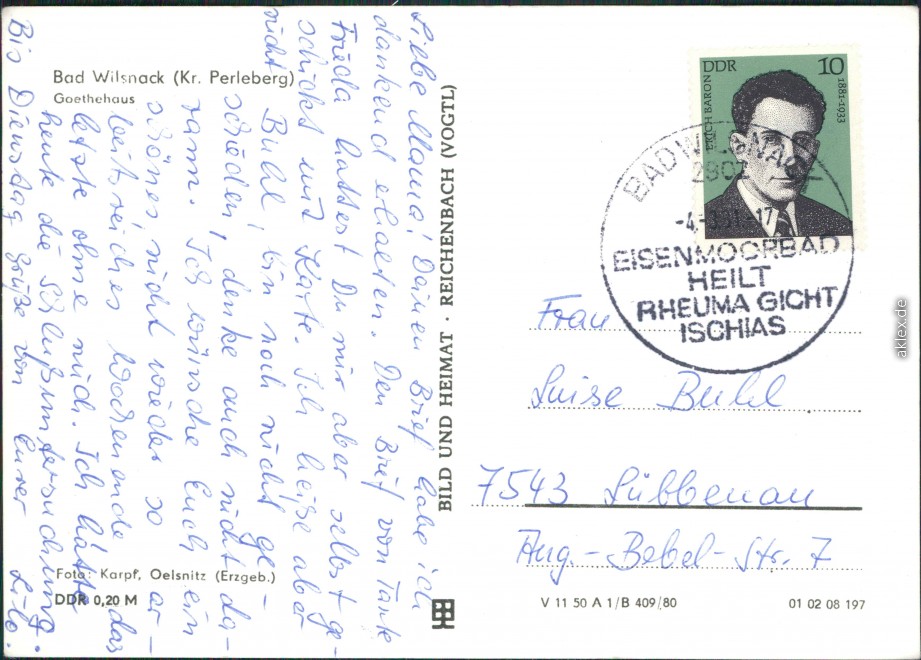 Bad Wilsnack (Kr. Perleberg)
Goethehaus
Liebe Mama! Deinen Brief habe ich
dankend erhalten. Den Brief von Tante
Frieda hattest Du mir aber selbst ge-
schickt mit Karte. Ich heiße aber
nicht Buhl, bin noch nicht ge-
schieden, denke auch nicht da-
ran. Ich wünsche Euch ein
schönes, nicht wieder so ar-
beitsreiches Wochenende, das
letzte ohne mich. Ich hatte
heute die Schlußuntersuchung.
Bis Dienstag grüße von Eurer Lilo.
Foto: Karpf, Oelsnitz (Erzgeb.)
DDR 0,20 M
BILD UND HEIMAT · REICHENBACH (VOGTL)
DDR 10
ERICH BARON
1881-1933
BAD WILSNACK
2901
-4.-3.81-17
EISENMOORBAD
HEILT
RHEUMA GICHT
ISCHIAS
Frau
Luise Buhl
7543 Lübbenau
Aug.-Bebel-Str. 7
V 11 50 A 1/B 409/80
01 02 08 197
aklex.de